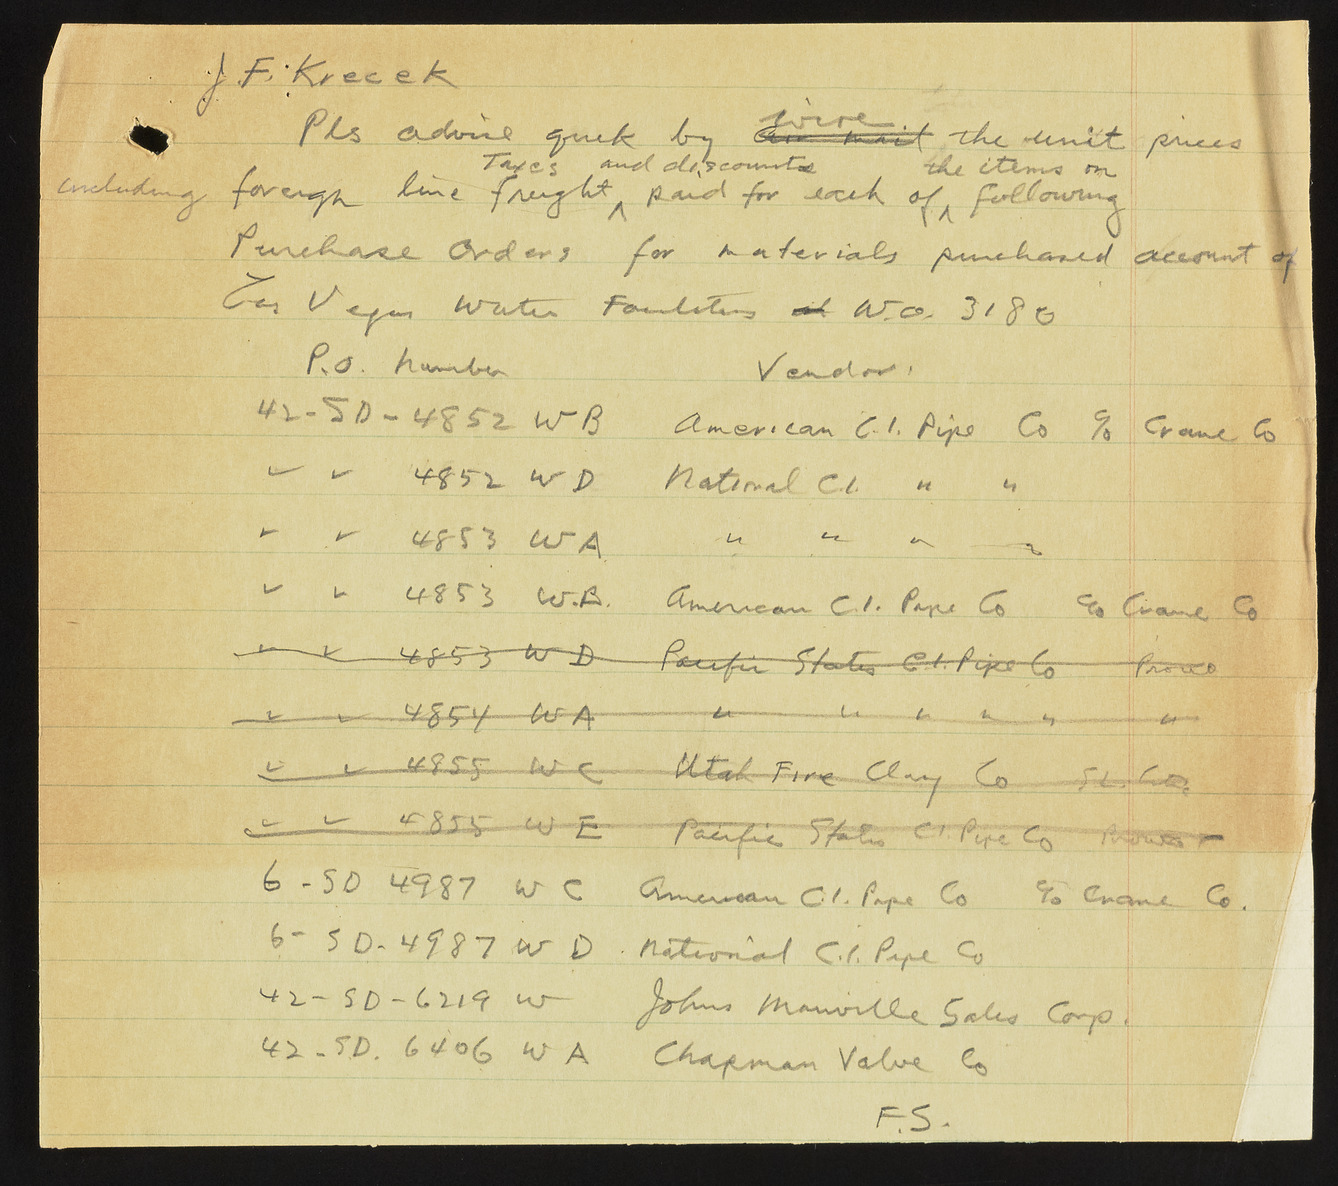 J.F. Krecek
Pls advise quek by air mail wire the unit prices
Taxes and discounts the items on
including foreign line freight paid for each of following
Purchase Orders for materials purchased account of
Las Vegas Water Facilities W.O. 3180
P.O. Number Vendor.
42-SD-4852 WB American C.I. Pipe Co c/o Crane Co
" " 4852 WD National C.I. " "
" " 4853 WA " " " "
" " 4853 W.B. American C.I. Pipe Co c/o Crane Co
" " 4853 WD Pacific States C.I. Pipe Co Provo
" " 4854 WA " " " " " "
" " 4855 WC Utah Fire Clay Co
" " 4855 WE Pacific States C.I. Pipe Co Provo
6-SD 4987 WC American C.I. Pipe Co c/o Crane Co.
6-SD-4987 WD National C.I. Pipe Co
42-SD-6219 W Johns Manville Sales Corp.
42-SD. 6406 WA Chapman Valve Co
F.S.